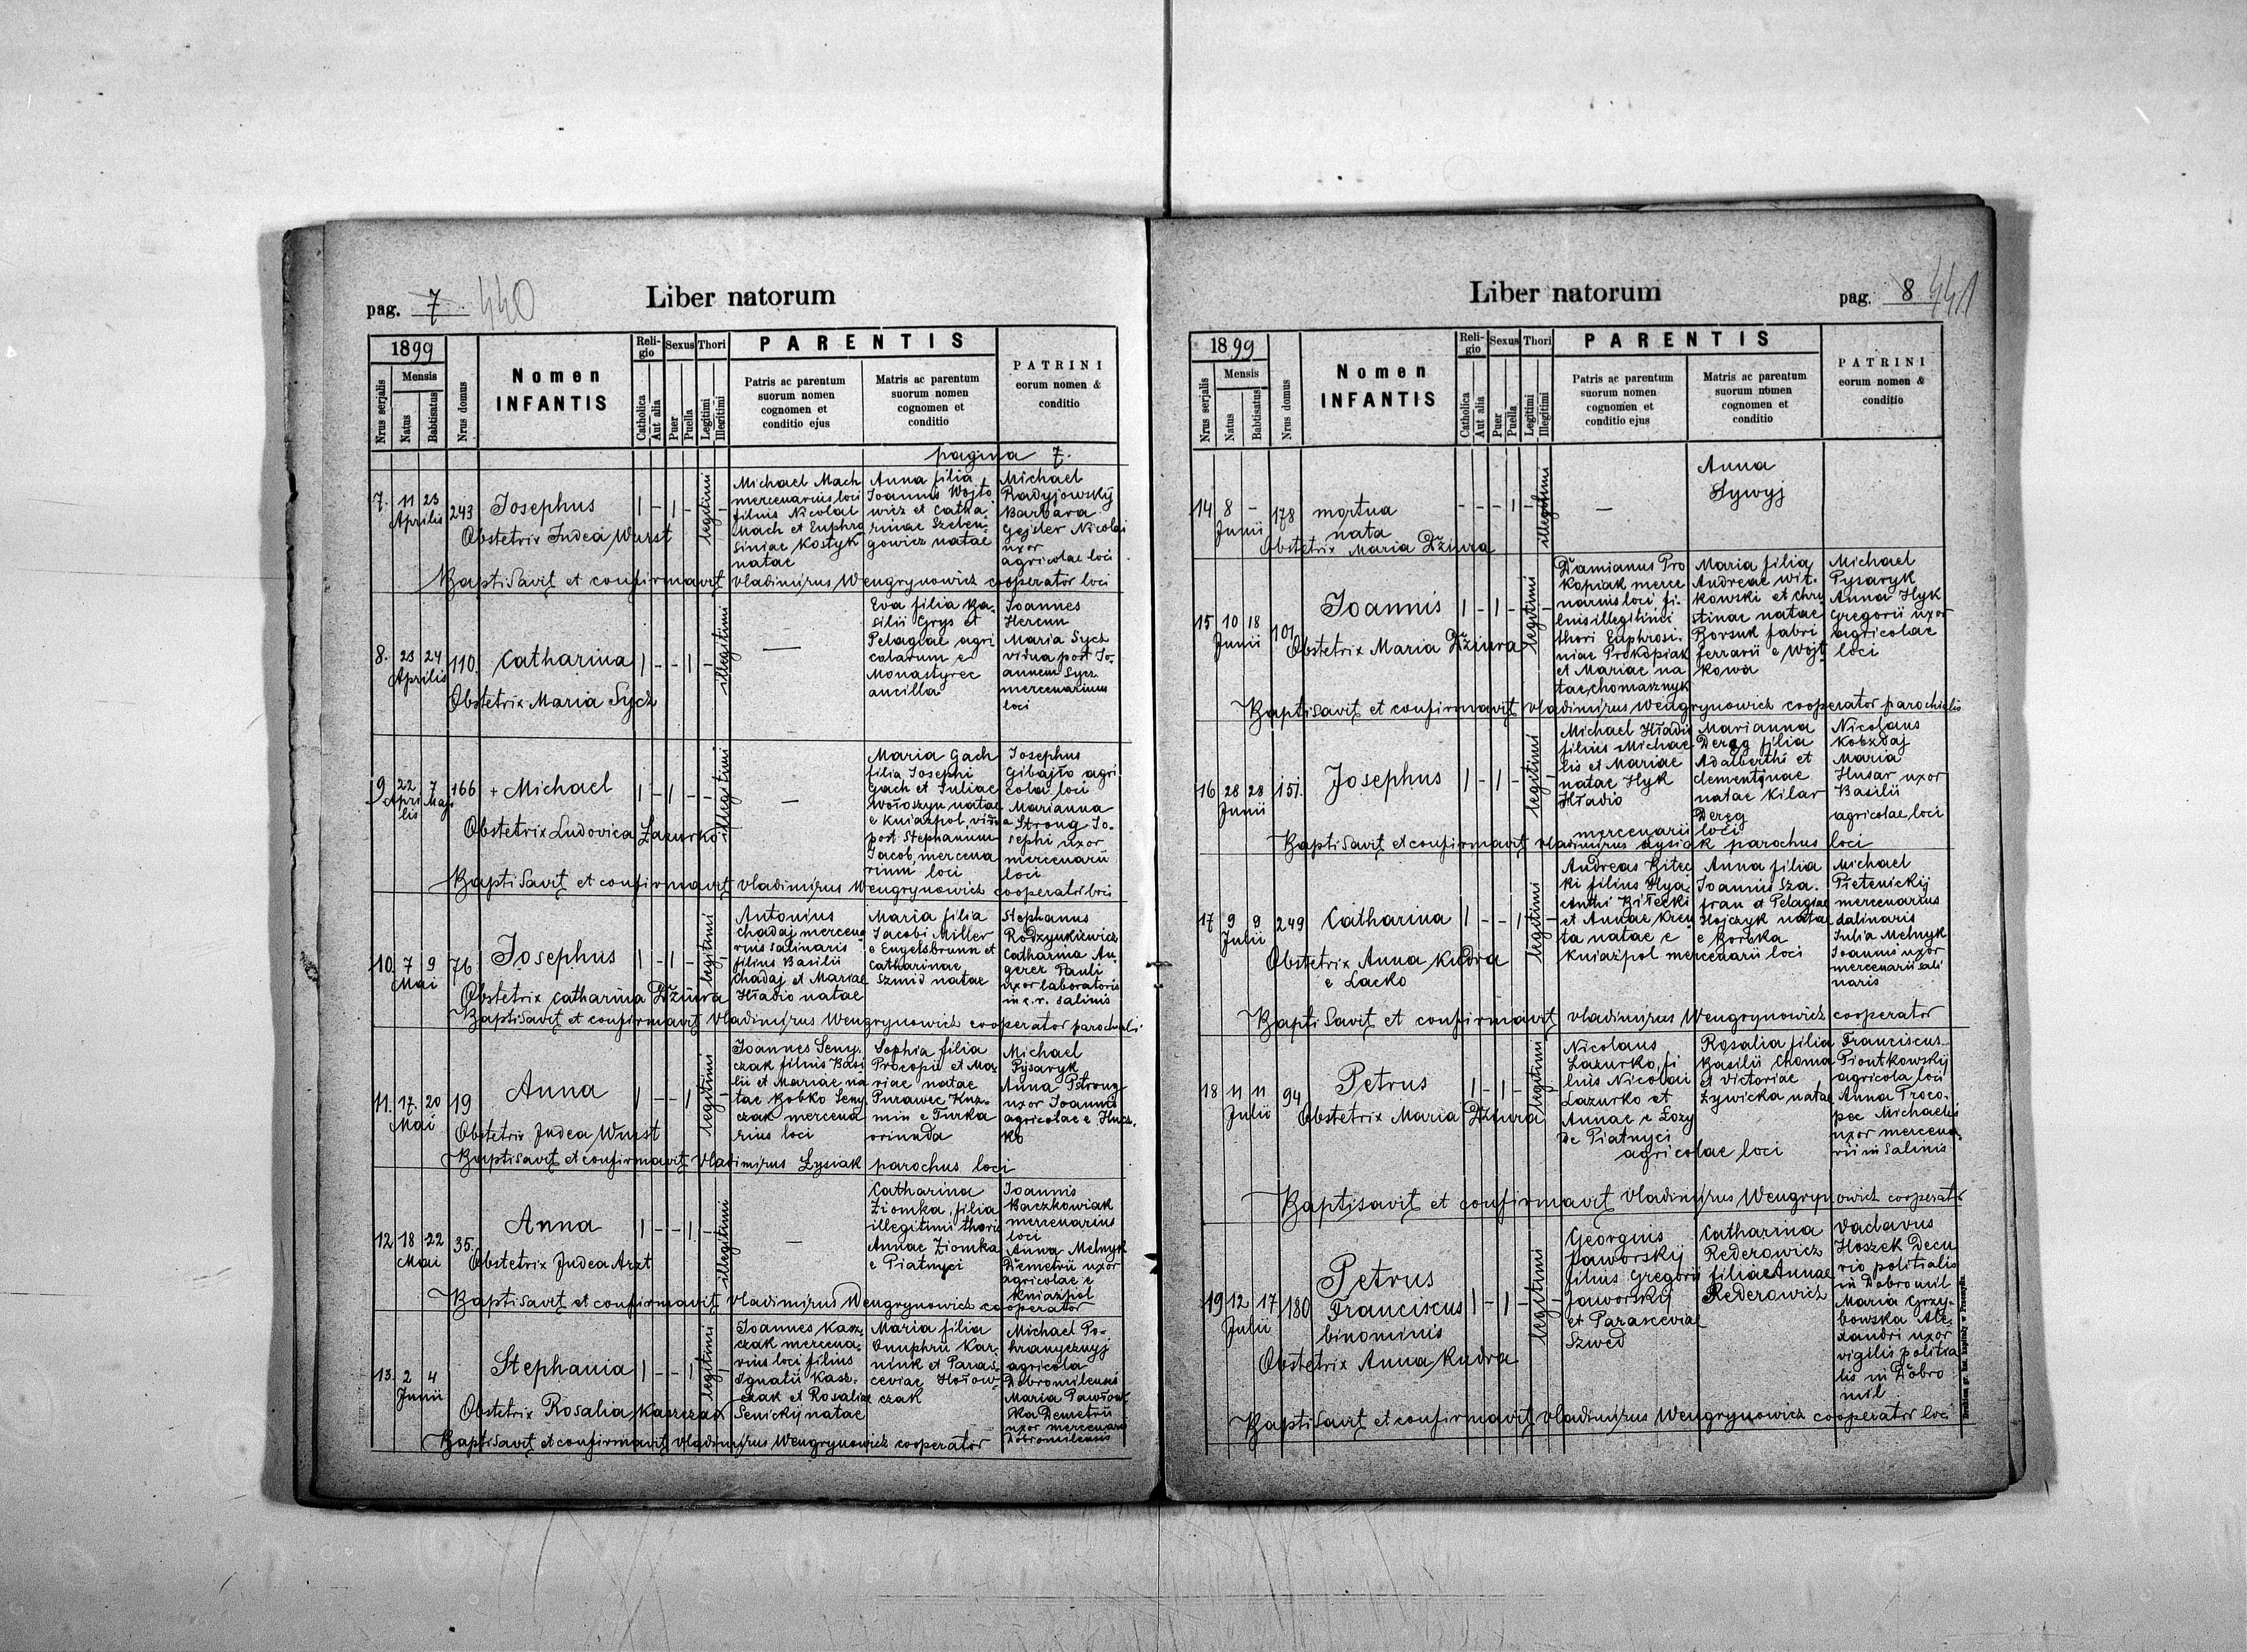 pag. 7 440
Liber natorum
1899
Nrus serjalis
Mensis
Natus
Babtisatus
Nrus domus
Nomen
INFANTIS
Reli-
gio
Catholica
Aut alia
Sexus
Puer
Puella
Thori
Legitimi
Illegitimi
PARENTIS
Patris ac parentum
suorum nomen
cognomen et
conditio ejus
Matris ac parentum
suorum nomen
cognomen et
conditio
PATRINI
eorum nomen &
conditio
pagina 7.
7. 11 23
Aprilis
243
Josephus
1 - 1 -
legitimi
Obstetrix Judea Wurst
Michael Mach
mercenarius loci
filius Nicolai
Mach et Euphro
siniae Kostyk
natae
Anna filia
Joannis Wojto
wicz et Catha
rinae Szeben
gowicz natae
Michael
Radyjowskÿ
Barbara
Gejsler Nicolai
uxor
agricolae loci
Baptisavit et confirmavit Vladimirus Wengrynowicz cooperator loci
8. 23 24
Aprilis
110.
Catharina
1 - - 1 -
illegitimi
Obstetrix Maria Sycz
—
Eva filia Ba-
silii Grys et
Pelagiae agri
colarum e
Monastyrec
ancilla
Joannes
Hercun
Maria Sycz
vidua post Jo-
annem Sycz
mercenarium
loci
9. 22 7
Apri Maji
lis
166
+ Michael
1 - 1 - -
illegitimi
Obstetrix Ludovica Lazurko
—
Maria Gach
filia Josephi
Gach et Juliae
Wołoszyn natae
e Kniazpol, vidua
post Stephanum
Jacob, mercena
rium loci
Josephus
Gibajło agri
cola loci
Marianna
Strong Jo-
sephi uxor
mercenarii
loci
Baptisavit et confirmavit Vladimirus Wengrynowicz cooperator loci
10. 7 9
Mai
76
Josephus
1 - 1 -
legitimi
Obstetrix Catharina Dżiura
Antonius
Chadaj mercena
rius salinaris
filius Basilii
Chadaj et Mariae
Hładio natae
Maria filia
Jacobi Miller
e Engelsbrunn et
Catharinae
Szmid natae
Stephanus
Rodzynkiewicz
Catharina An-
gerer Pauli
uxor laboratoris
in c. r. salinis
Baptisavit et confirmavit Vladimirus Wengrynowicz cooperator parochialis
11. 17. 20
Mai
19
Anna
1 - - 1
legitimi
Obstetrix Judea Wurst
Joannes Seny-
czak filius Basi
lii et Mariae na
tae Bobko Seny
czak mercena
rius loci
Sophia filia
Procopii et Ma-
riae natae
Purawec Kuz-
min e Turka
oriunda
Michael
Pysaryk
Anna Petrong
uxor Joannis
agricolae e Hucz-
ko
Baptisavit et confirmavit Vladimirus Lysiak parochus loci
12 18 22
Mai
35.
Anna
1 - - 1 -
illegitimi
Obstetrix Judea Arzt
—
Catharina
Ziomka, filia
illegitimi thori
Annae Ziomka
e Piatnyci
Joannis
Baczkowiak
mercenarius
loci
Anna Melnyk
Demetrii uxor
agricolae e
Kniazpol
Baptisavit et confirmavit Vladimirus Wengrynowicz cooperator
13. 2 4
Junii
Stephania
1 - - 1
legitimi
Obstetrix Rosalia Kaszczak
Joannes Kasz-
czak mercena-
rius loci filius
Ignatii Kasz-
czak et Rosaliae
Senickij natae
Maria filia
Onuphrii Kar-
nink et Paras-
ceviae Hołow-
czak
Michael Po-
hranycznyj
agricola
Dobromilensis
Maria Pawłow
ska Demetrii
uxor mercenarii
Dobromilensis
Baptisavit et confirmavit Vladimirus Wengrynowicz cooperator
Liber natorum
pag. 8 441
1899
Nrus serjalis
Mensis
Natus
Babtisatus
Nrus domus
Nomen
INFANTIS
Reli-
gio
Catholica
Aut alia
Sexus
Puer
Puella
Thori
Legitimi
Illegitimi
PARENTIS
Patris ac parentum
suorum nomen
cognomen et
conditio ejus
Matris ac parentum
suorum nomen
cognomen et
conditio
PATRINI
eorum nomen &
conditio
14 8 -
Junii
178
mortua
nata
- - - 1 -
illegitimi
Obstetrix Maria Dżiura
—
Anna
Sywyj
15 10 18
Junii
101
Joannis
1 - 1 -
legitimi
Obstetrix Maria Dżiura
Damianus Pro
kopiak merce
narius loci fi-
lius illegitimi
thori Euphrosi-
niae Prokopiak
et Mariae na
tae Chomasznyk
Maria filia
Andreae Wit-
kowski et Chry
stinae natae
Borsuk fabri
ferrarii e Wojt
kowa
Michael
Pysaryk
Anna Hyk
Gregorii uxor
agricolae
loci
Baptisavit et confirmavit Vladimirus Wengrynowicz cooperator parochialis
16 28 28
Junii
151.
Josephus
1 - 1 -
legitimi
Michael Hładio
filius Michae
lis et Mariae
natae Hyk
Hładio
Marianna
Dereg filia
Adalberthi et
Clementinae
natae Kilar
Dereg
mercenarii loci
Nicolaus
Kobzdaj
Maria
Husar uxor
Basilii
agricolae loci
Baptisavit et confirmavit Vladimirus Lysiak parochus loci
17 9 9
Julii
249
Catharina
1 - - 1
legitimi
Obstetrix Anna Kudra
e Lacko
Andreas Bitec
ki filius Hya-
cinthi Biłecki
et Annae Kreu
ta natae e
Kniazpol mercenarii loci
Anna filia
Joannis Sza-
fran et Pelagiae
Hojczyk natae
e Borbka
Michael
Pietenickij
mercenarius
salinaris
Julia Melnyk
Joannis uxor
mercenarii sali
naris
Baptisavit et confirmavit Vladimirus Wengrynowicz cooperator
18 11 11
Julii
94
Petrus
1 - 1 -
legitimi
Obstetrix Maria Dżiura
Nicolaus
Lazurko, fi
lius Nicolai
Lazurko et
Annae e Lozy
de Piatnyci
agricolae loci
Rosalia filia
Basilii Choma
et Victoriae
Żywicka natae
Franciscus
Piontkowskij
agricola loci
Anna Troco-
pec Michaelis
uxor mercena-
rii in salinis
Baptisavit et confirmavit Vladimirus Wengrynowicz cooperator
19 12 17
Julii
180
Petrus
Franciscus
binominis
1 - 1 -
legitimi
Obstetrix Anna Kudra
Georgius
Jaworskij
filius Gregorii
Jaworskÿ
et Parasceviae
Szwed
Catharina
Rederowicz
filia Annae
Rederowicz
Vaclavus
Hoszek decu
rio politialis
in Dobromil
Maria Grzy-
bowska Ale-
xandri uxor
vigilis politia
lis in Dobro
mil
Baptisavit et confirmavit Vladimirus Wengrynowicz cooperator loci